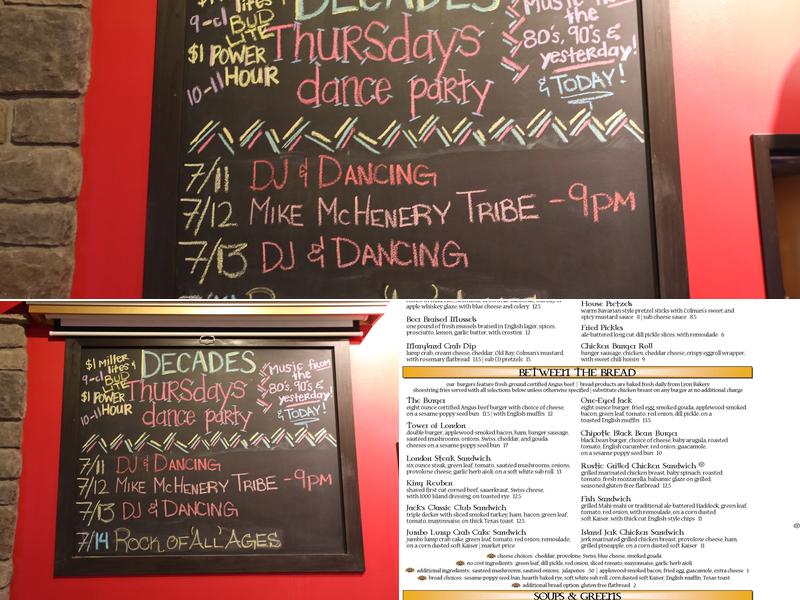 $1 Miller
lites &
9-cl BUD
LITE
$1 POWER
HOUR
10-11
DECADES
Thursdays
dance party
Music from
the
80's, 90's &
yesterday!
& TODAY!
7/11 DJ & DANCING
7/12 MIKE MCHENERY TRIBE - 9PM
7/13 DJ & DANCING
$1 Miller
lites &
9-cl BUD
LITE
$1 POWER
HOUR
10-11
DECADES
Thursdays
dance party
Music from
the
80's, 90's &
yesterday!
& TODAY!
7/11 DJ & DANCING
7/12 MIKE MCHENERY TRIBE - 9PM
7/13 DJ & DANCING
7/14 ROCK OF ALL AGES
apple whiskey glaze, with blue cheese and celery 12.5
Beer Braised Mussels
one pound of fresh mussels braised in English lager, spices,
prosciutto, lemon, garlic butter, with crostini 12
Maryland Crab Dip
lump crab, cream cheese, cheddar, Old Bay, Colman's mustard,
with rosemary flatbread 13.5 | sub (3) pretzels 15
House Pretzels
warm Bavarian style pretzel sticks with Colman's sweet and
spicy mustard sauce 8 | sub cheese sauce 8.5
Fried Pickles
ale-battered long cut dill pickle slices, with remoulade 6
Chicken Banger Roll
banger sausage, chicken, cheddar cheese, crispy eggroll wrapper,
with sweet chili hoisin 9
BETWEEN THE BREAD
our burgers feature fresh ground certified Angus beef | bread products are baked fresh daily from Lyon Bakery
shoestring fries served with all selections below unless otherwise specified | substitute chicken breast on any burger at no additional charge
The Burger
eight ounce certified Angus beef burger with choice of cheese,
on a sesame poppy seed bun 11.5 | with English muffin 12
Tower of London
double burger, applewood-smoked bacon, ham, banger sausage,
sautéed mushrooms, onions, Swiss, cheddar, and gouda
cheeses on a sesame poppy seed bun 17
London Steak Sandwich
six ounce steak, green leaf, tomato, sautéed mushrooms, onions,
provolone cheese, garlic herb aioli, on a soft white sub roll 13
King Reuben
shaved first cut corned beef, sauerkraut, Swiss cheese,
with 1000 Island dressing, on toasted rye 12.5
Jack's Classic Club Sandwich
triple decker with sliced smoked turkey, ham, bacon, green leaf,
tomato, mayonnaise, on thick Texas toast 12.5
Jumbo Lump Crab Cake Sandwich
jumbo lump crab cake, green leaf, tomato, red onion, remoulade,
on a corn dusted soft Kaiser | market price
One-Eyed Jack
eight ounce burger, fried egg, smoked gouda, applewood-smoked
bacon, green leaf, tomato, red onion, dill pickle, on a
toasted English muffin 13.5
Chipotle Black Bean Burger
black bean burger, choice of cheese, baby arugula, roasted
tomato, English cucumber, red onion, guacamole,
on a sesame poppy seed bun 10
Rustic Grilled Chicken Sandwich
grilled marinated chicken breast, baby spinach, roasted
tomato, fresh mozzarella, balsamic glaze on grilled,
seasoned gluten-free flatbread 12.5
Fish Sandwich
grilled Mahi-mahi or traditional ale-battered Haddock, green leaf,
tomato, red onion, with remoulade, on a corn dusted
soft Kaiser, with thick cut English-style chips 11
Island Jerk Chicken Sandwich
jerk marinated grilled chicken breast, provolone cheese, ham,
grilled pineapple, on a corn dusted soft Kaiser 11
cheese choices: cheddar, provolone, Swiss, blue cheese, smoked gouda
no cost ingredients: green leaf, dill pickle, red onion, sliced tomato, mayonnaise, garlic herb aioli
additional ingredients: sautéed mushrooms, sautéed onions, jalapenos .50 | applewood-smoked bacon, fried egg, guacamole, extra cheese 1
bread choices: sesame poppy seed bun, hearth baked rye, soft white sub roll, corn dusted soft Kaiser, English muffin, Texas toast
additional bread option: gluten free flatbread 2
SOUPS & GREENS